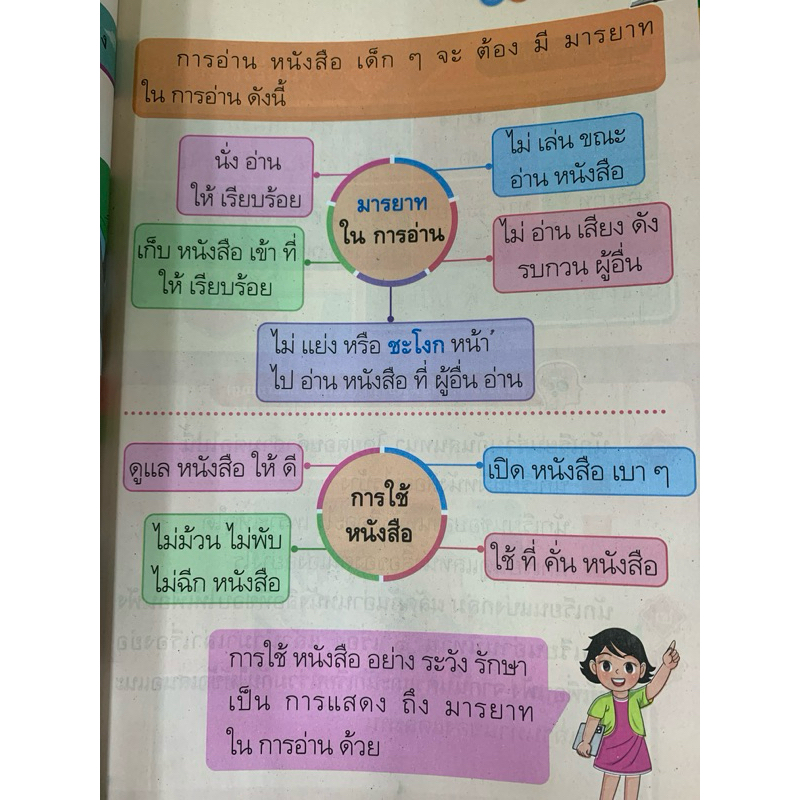 การอ่าน หนังสือ เด็ก ๆ จะ ต้อง มี มารยาท
ใน การอ่าน ดังนี้
นั่ง อ่าน
ให้ เรียบร้อย
ไม่ เล่น ขณะ
อ่าน หนังสือ
มารยาท
ใน การอ่าน
เก็บ หนังสือ เข้า ที่
ให้ เรียบร้อย
ไม่ อ่าน เสียง ดัง
รบกวน ผู้อื่น
ไม่ แย่ง หรือ ชะโงก หน้า
ไป อ่าน หนังสือ ที่ ผู้อื่น อ่าน
ดูแล หนังสือ ให้ ดี
เปิด หนังสือ เบา ๆ
การใช้
หนังสือ
ไม่ม้วน ไม่พับ
ไม่ฉีก หนังสือ
ใช้ ที่ คั่น หนังสือ
การใช้ หนังสือ อย่าง ระวัง รักษา
เป็น การแสดง ถึง มารยาท
ใน การอ่าน ด้วย